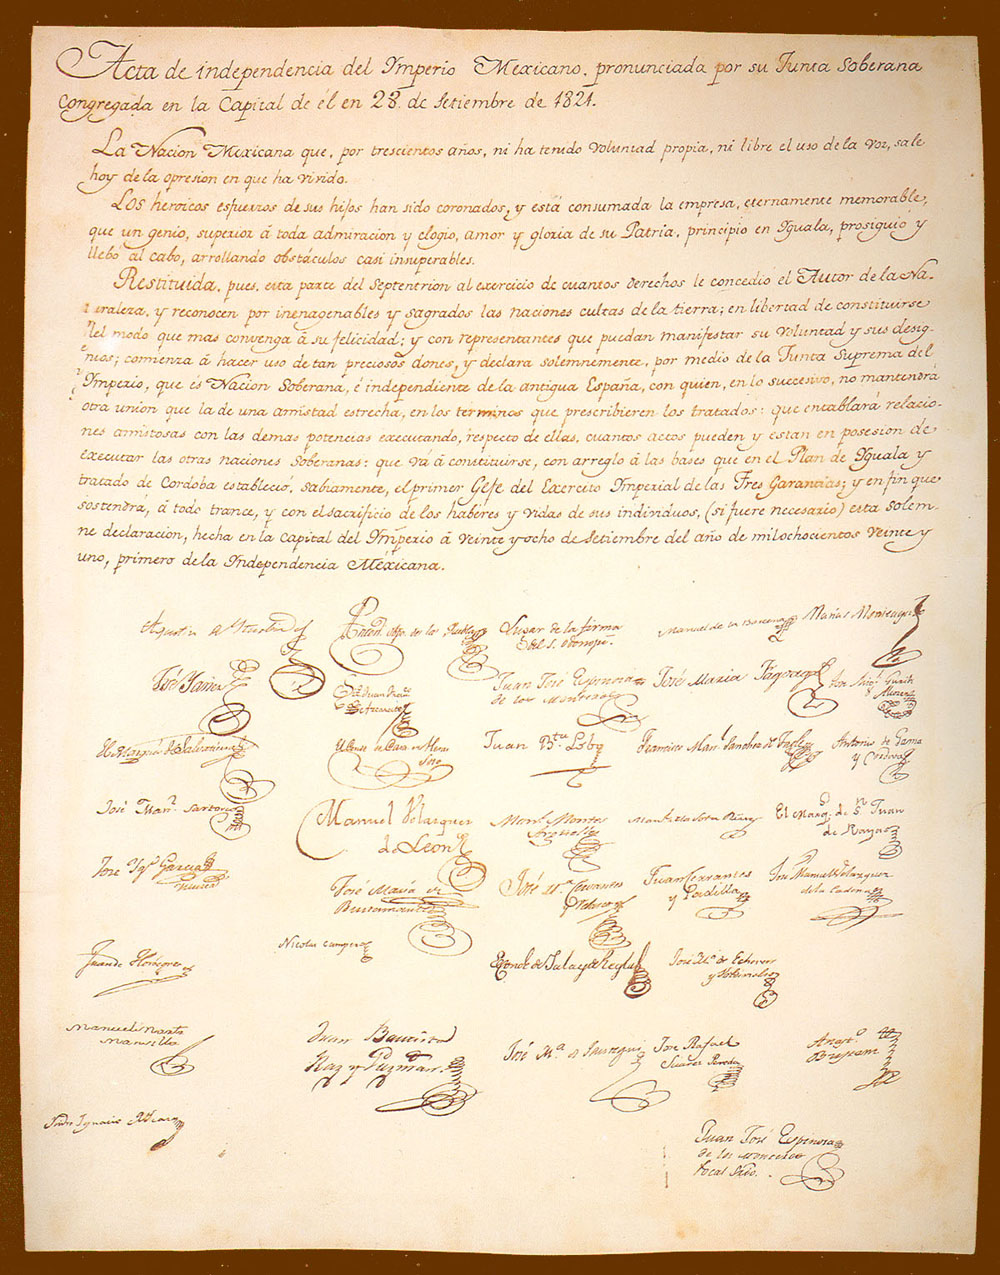 Acta de independencia del Ymperio Mexicano, pronunciada por su Junta Soberana
congregada en la Capital de él en 28. de Setiembre de 1821.
La Nacion Mexicana que, por trescientos años, ni ha tenido voluntad propia, ni libre el uso de la voz, sale
hoy de la opresion en que ha vivido.
Los heroicos esfuerzos de sus hijos han sido coronados, y está consumada la empresa, eternamente memorable,
que un genio, superior á toda admiracion y elogio, amor y gloria de su Patria, principió en Iguala, prosiguió y
llebó al cabo, arrollando obstáculos casi insuperables.
Restituida, pues, esta parte del Septentrion al exercicio de cuantos derechos le concedió el Autor de la Na-
turaleza, y reconocen por inenagenables y sagrados las naciones cultas de la tierra; en libertad de constituirse
del modo que mas convenga á su felicidad; y con representantes que puedan manifestar su voluntad y sus desig-
nios; comienza á hacer uso de tan preciosos dones, y declara solemnemente, por medio de la Junta Suprema del
Ymperio, que és Nacion Soberana, é independiente de la antigua España, con quien, en lo succesivo, no mantendrá
otra union que la de una amistad estrecha, en los terminos que prescribieren los tratados: que entablará relacio-
nes amistosas con las demas potencias executando, respecto de ellas, cuantos actos pueden y estan en posesion de
executar las otras naciones soberanas: que vá á constituirse, con arreglo á las bases que en el Plan de Iguala y
tratado de Cordoba estableció, sabiamente, el primer Gefe del Exercito Ymperial de las Tres Garantias; y en fin que
sostendrá, á todo trance, y con el sacrificio de los haberes y vidas de sus individuos, (si fuere necesario) esta solem-
ne declaracion, hecha en la Capital del Ymperio á veinte y ocho de Setiembre del año de mil ochocientos veinte y
uno, primero de la Independencia Méxicana.
Agustin de Iturbide Anton. Obpo. de la Puebla Lugar de la firma Manuel de la Barcena Matias Monteagudo
del S. Odonojú.
José Yañez Juan José Espinosa José Maria Fagoaga
de los Monteros
Juan Bta. Lobo Francisco Man. Sanchez de Tagle Antonio de Gama
y Cordova
José Man. Sartorio Manuel Velazquez Man. Montes El Marq. de Sn. Juan
de Leon Arguelles de Rayas
José Ygn. Garcia José María de José M.a Cervantes Juan Cervantes José Manuel Velazquez
Bustamante y Velasco y Padilla de la Cadena
Juan de Horbegoso Nicolas Campero El Conde de Jala y de Regla José M.a de Echevers
y Valdivielso
Manuel Martz. Juan Bautista José M.a de Jauregui José Rafael Anast.o
Mansilla Raz y Guzman Suarez Pereda
Juan José Espinosa
de los Monteros
Vocal Srio.